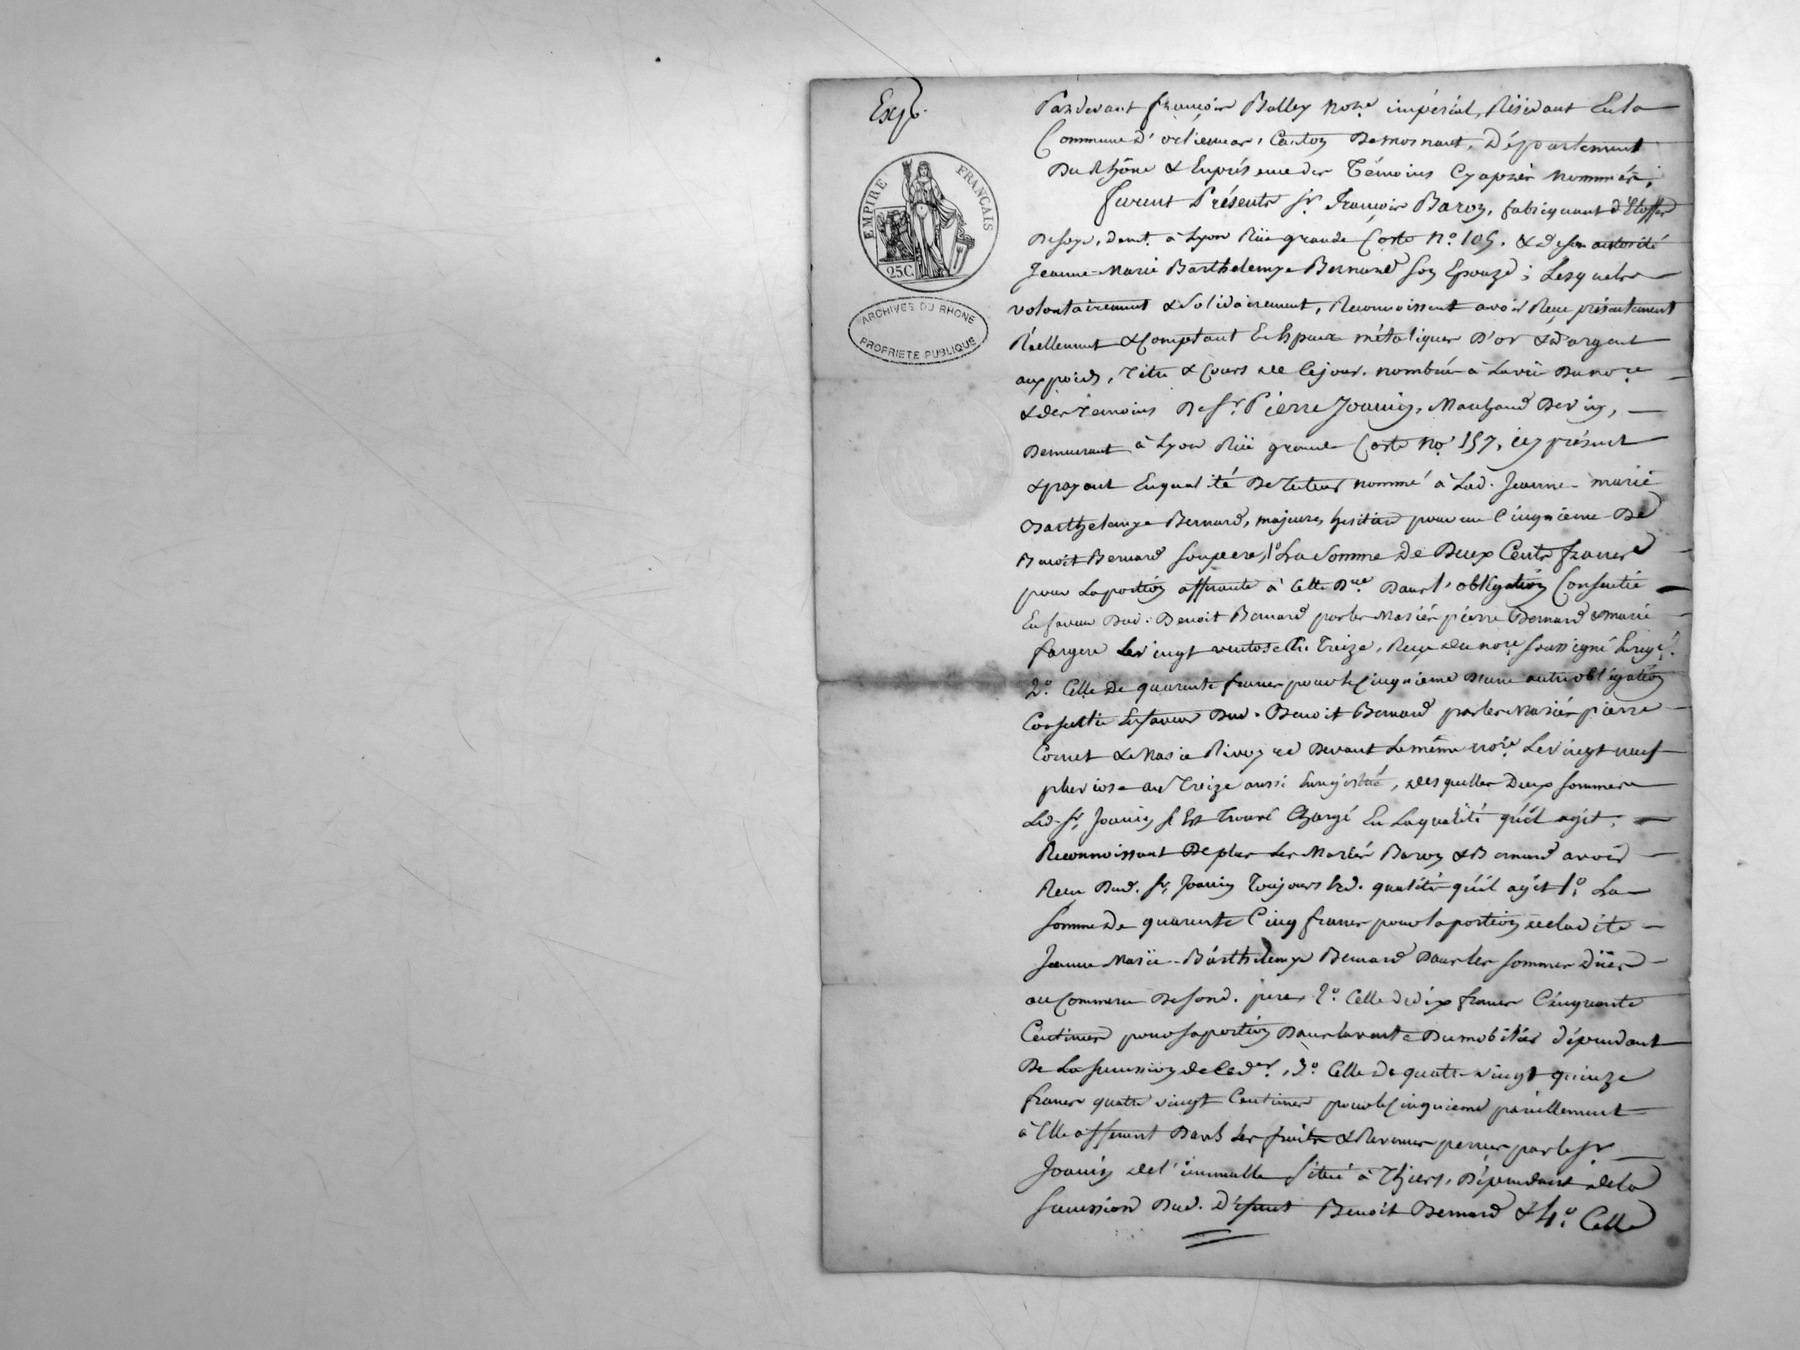 Exp.
EMPIRE FRANÇAIS
25C.
ARCHIVES DU RHONE
PROPRIETE PUBLIQUE
Pardevant françois Balley Notre impérial, Résidant En la
Commune d'orliénas, Canton De mornant, Département
Du Rhône & En présence des Témoins Cy après nommés;
furent Présents Sr. François Baron, fabriquant d'Etoffes
De soye, demt. à Lyon Rüe grande Coste No. 105. & de son autorité
Jeanne-Marie Barthelemye Bernard Son Epouze; Lesquels
volontairement & solidairement, Reconnoissent avoir Reçu présentement
Réellement & Comptant En Espèces métaliques D'or & d'argent
aux poids, Titre & Cours de Ce jour. nombrés à La vüe Du nore
& des Témoins De Sr. Pierre Joanin, Marchand De vin,
Demeurant à Lyon Rüe grande Coste No. 157, icy présent
& payant En qualité De Tuteur nommé à Lad. Jeanne-marie
Barthelemye Bernard, majeure, héritière pour un Cinquième De
Benoit Bernard son père, 1o. La Somme De Deux Cents francs
pour La portion afférente à Cette Dme Dans l'obligation Consentie
En faveur Dud. Benoit Bernard par les Mariés pierre Bernard & marie
fargere Le vingt ventose An Treize, Reçue du nore soussigné Enregé.
2o. Celle De quarante francs pour le Cinquième D'une autre obligation
Consentie En faveur Dud. Benoit Bernard par les Mariés pierre
Cornet & Marie Rivoyre Devant Le même nore Le vingt neuf
pluviose an Treize aussi Enregistrée, desquelles Deux sommes
Led. Sr. Joanin s'Est Trouvé Chargé En La qualité qu'il agit.
Reconnoissant De plus Les Mariés Baron & Bernard avoir
Reçu Dud. Sr. Joanin Toujours En lad. qualité qu'il agit 1o. La
Somme De quarante Cinq francs pour la portion de ladite
Jeanne Marie-Barthelemye Bernard Dans les sommes Dües
au Commerce De sond. père 2o. Celle de dix francs Cinquante
Centimes pour sa portion Dans la vente Du mobilier dépendant
De La succession de Ce der., 3o. Celle De quatre vingt quinze
francs quatre vingt Centimes pour le Cinquième pareillement
à Elle afférent Dans Les fruits & Revenus perçus par le Sr
Joanin de l'immeuble Situé à Thiers, Dépendant de la
Succession Dud. Défunt Benoit Bernard & 4o. Celle